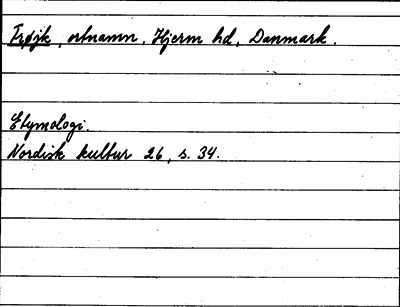 Trøjk, ortnamn, Hjerm hd, Danmark.
Etymologi.
Nordisk kultur 26, s. 34.